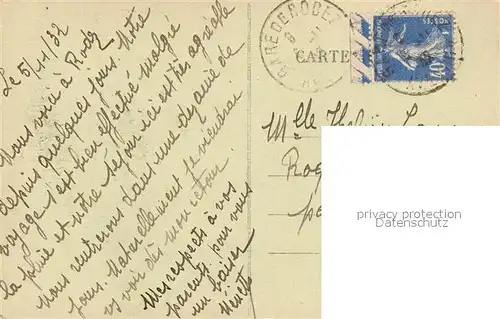 Le 5/11/32
Nous voici à Rodez
depuis quelques jours. Notre
voyage s'est bien effectué malgré
la pluie et notre séjour ici est très agréable
Nous rentrerons dans une dizaine de
jours. Naturellement je viendrai
vs voir dès mon retour.
Mes respects à vos
parents, pour vous
un baiser
GARE DE RODEZ
CARTE
40c
Mlle
privacy protection watermark
privacy protection watermark